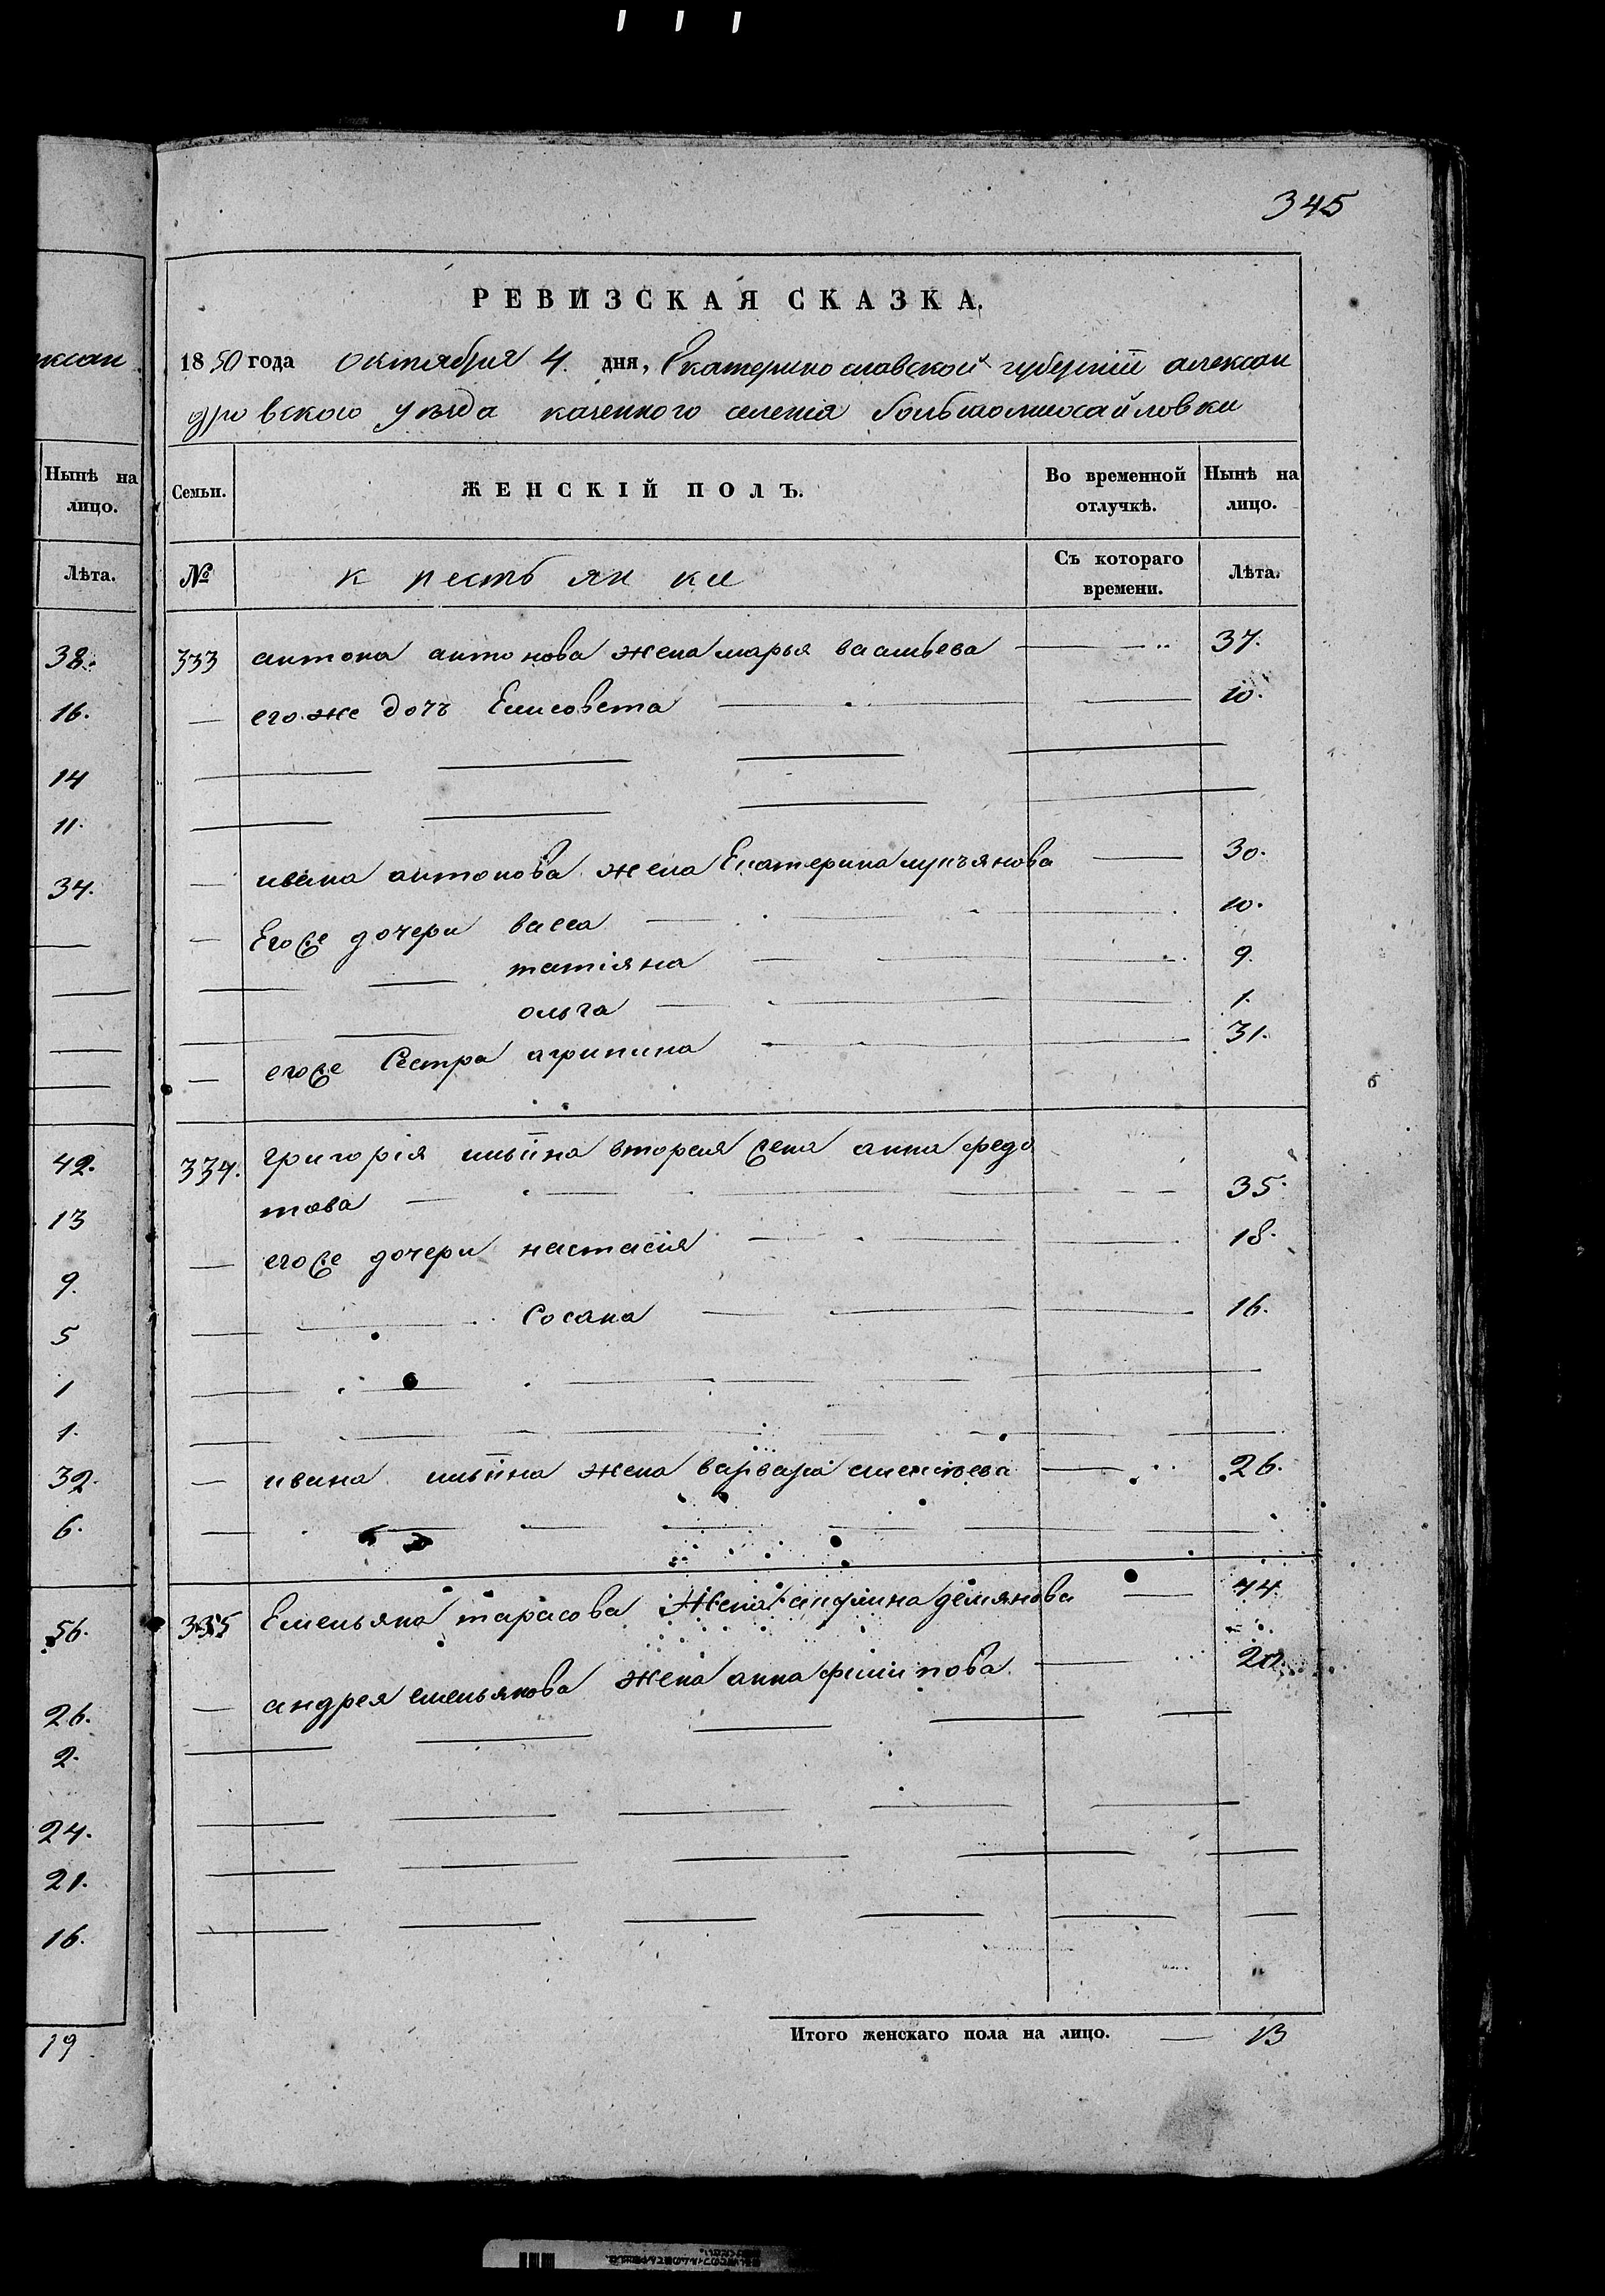 345
РЕВИЗСКАЯ СКАЗКА.
1850 года октября 4. дня, Екатеринославской губернiи алексан
дровского уѣзда казенного селенiя большомихайловки
ксан
Нынѣ на лицо.
Лѣта.
38.
16.
14
11.
34.
42.
13
9.
5
1
1.
32.
6.
56.
26.
2.
24.
21.
16.
19
Семьи. ЖЕНСКІЙ ПОЛЪ. Во временной отлучкѣ. Нынѣ на лицо.
№ крестьянки Съ котораго времени. Лѣта.
333 антона антонова жена марья васильева — 37.
— его же дочь Елисовета — 10.
— ивана антонова жена Екатерина лукъянова — 30.
— Егоже дочери васса — 10.
— татіяна — 9.
— ольга — 1.
— егоже Сестра агрипина — 31.
334. григорія ильiна вторая жена анна федо
това — 35.
— егоже дочери настасия — 18.
— Сосана — 16.
— ивана ильiна жена варвара — 26.
335 Емельяна тарасова жена демянова — 44.
— андрея емельянова жена анна филипова — 20.
Итого женскаго пола на лицо. — 13